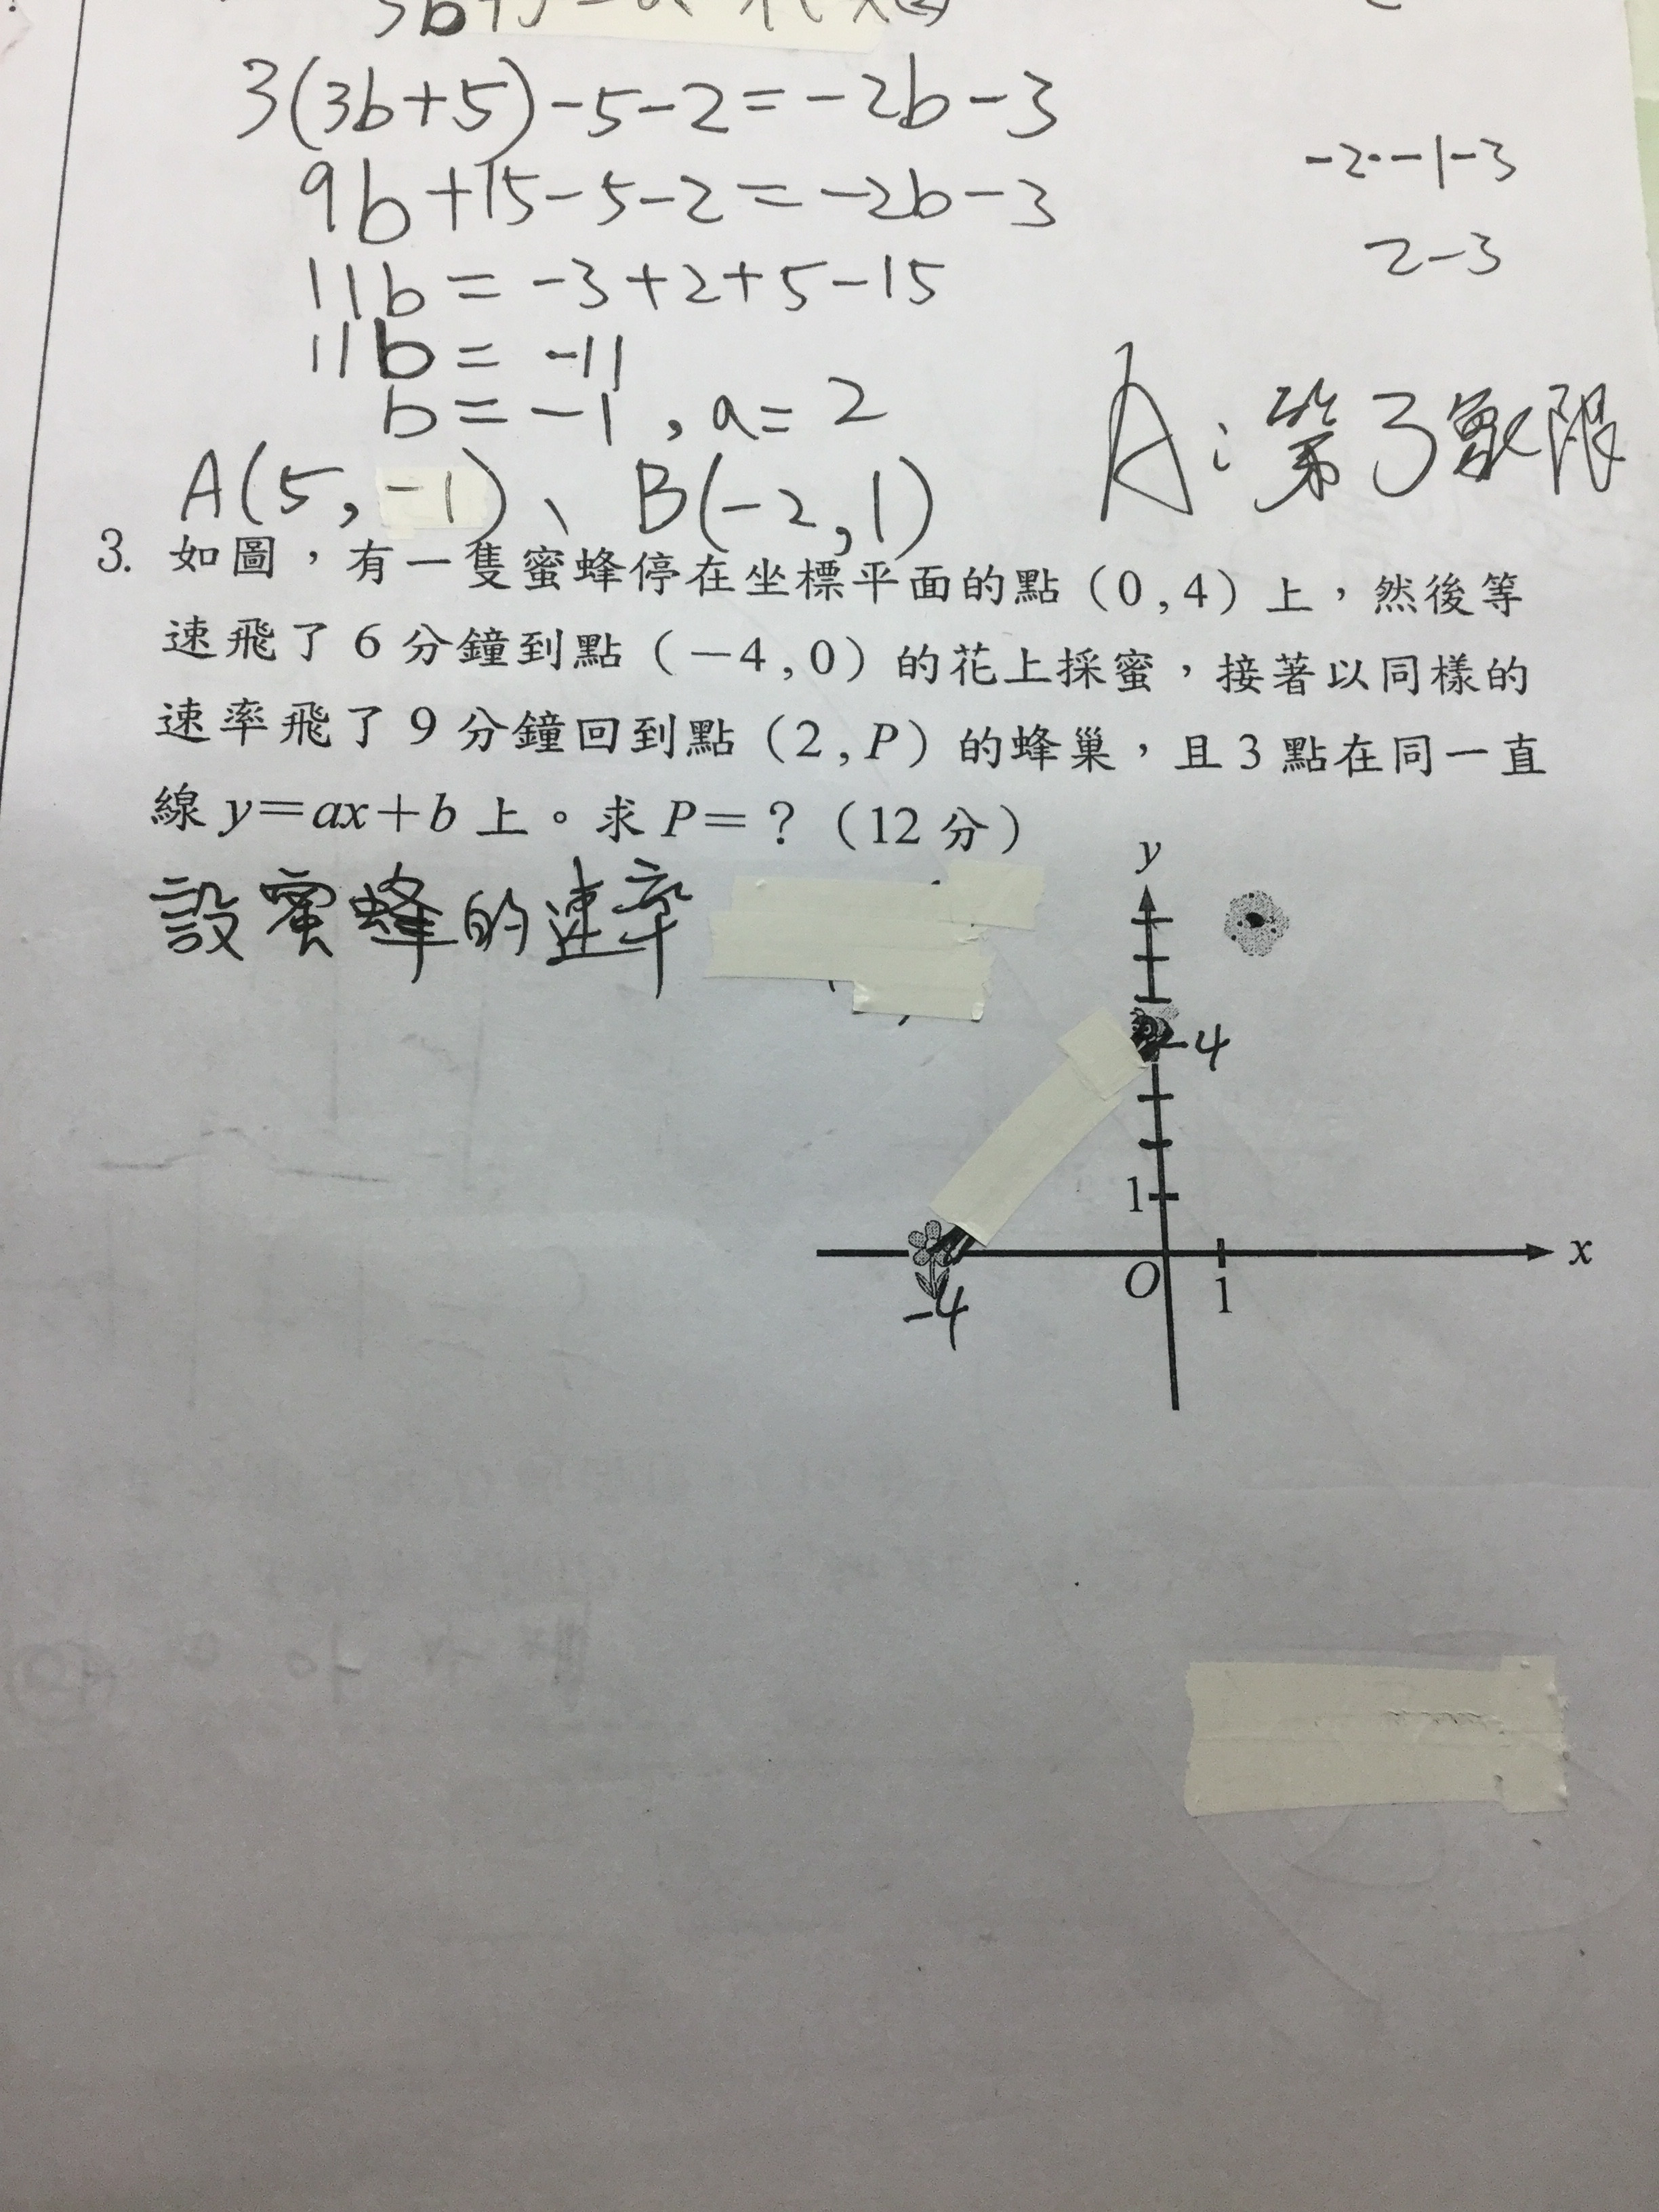 3(3b+5)-5-2=-2b-3
9b+15-5-2=-2b-3
11b=-3+2+5-15
11b=-11
b=-1,a=2
-2·-1-3
2-3
A:第3象限
A(5,-1)、B(-2,1)
3. 如圖,有一隻蜜蜂停在坐標平面的點(0,4)上,然後等
速飛了6分鐘到點(-4,0)的花上採蜜,接著以同樣的
速率飛了9分鐘回到點(2,P)的蜂巢,且3點在同一直
線y=ax+b上。求P=?(12分)
設蜜蜂的速率
y
4
1
x
O
1
-4